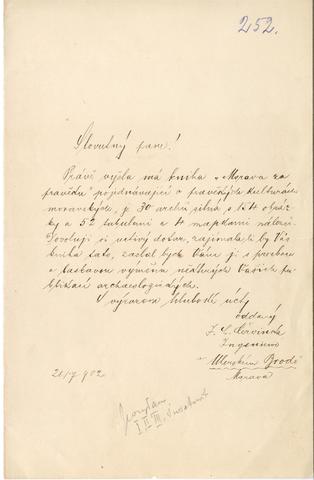 252.
Slovutný pane!
Právě vyšla má kniha „Morava za
pravěku" pojednávající o pravěkých kulturách
moravských, je 30 archů silná s 154 obráz-
ky a 52 tabulemi a 4 mapkami
Dovoluji si uctivý dotaz, zajímala-li by Vás
kniha tato, zaslal bych Vám ji s prosbou
o laskavou výměnu některých Vašich pu-
blikací archaeologických.
S výrazem hluboké úcty
oddaný
I. L. Červinka
Ingenieur
v Uherském Brodě
Morava
21/7 902
I II III.